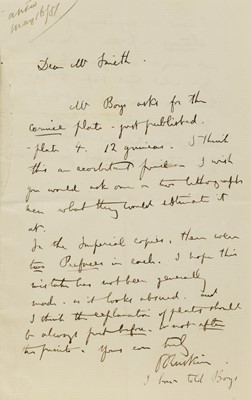 May 16/51
Dear Mr Smith.
Mr Boys asks for the
Cornice plate - just published.
plate 4. 12 guineas. I think
this an exorbitant price - I wish
you would ask one or two lithographers
what they would estimate it
at.
In the Imperial copies, there were
two Prefaces in each. I hope this
mistake has not been generally
made - as it looks absurd. and
I think the explanation of plates should
be always put before - & not after
the prints. Yours
JRuskin.
I have told Boys